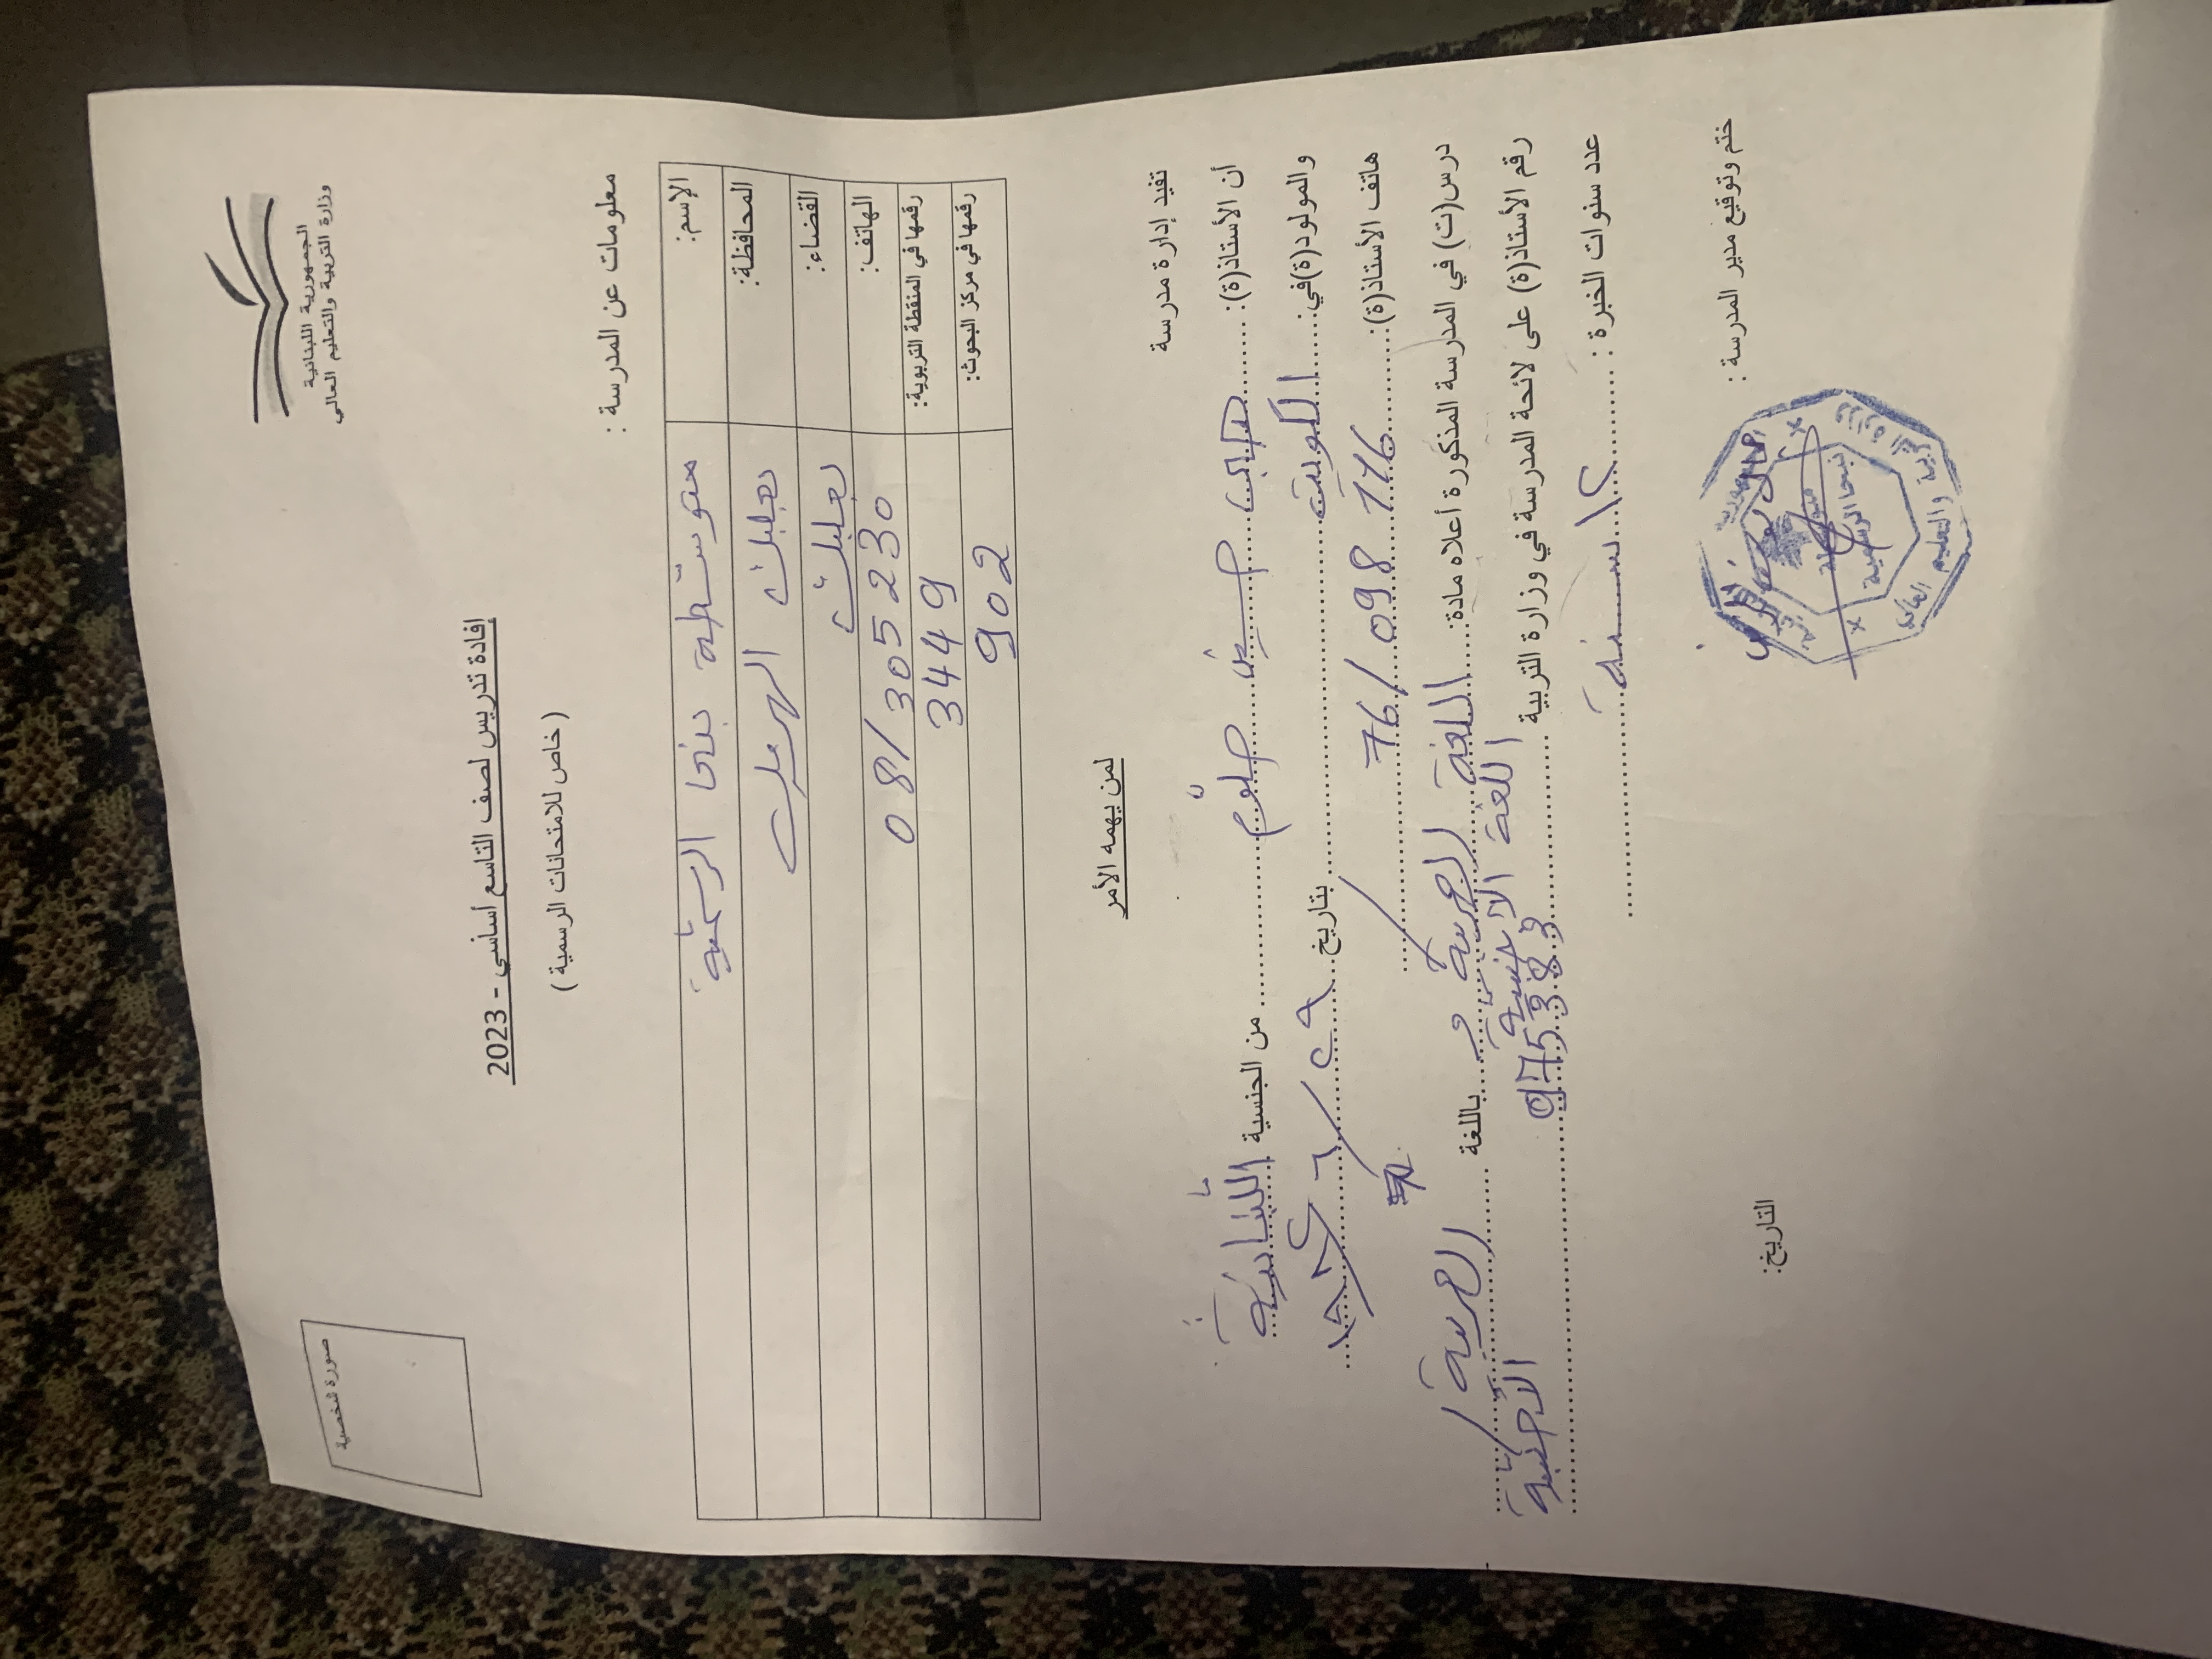 الجمهورية اللبنانية
وزارة التربية والتعليم العالي
صورة شخصية
إفادة تدريس لصف التاسع أساسي - 2023
( خاص للامتحانات الرسمية )
معلومات عن المدرسة :
الإسم: متوسطة بدنايا الرسمية
المحافظة: بعلبك الهرمل
القضاء: بعلبك
الهاتف: 08/305230
رقمها في المنقطة التربوية: 3449
رقمها في مركز البحوث: 902
لمن يهمه الأمر
تفيد إدارة مدرسة
أن الأستاذ(ة): حسين من الجنسية اللبنانية
والمولود(ة)في: الكويت بتاريخ
هاتف الأستاذ(ة): 76/098776
درس(ت) في المدرسة المذكورة أعلاه مادة: اللغة العربية و باللغة العربية /
اللغة الأجنبية الأجنبية
رقم الأستاذ(ة) على لائحة المدرسة في وزارة التربية 975383
عدد سنوات الخبرة : ١٢ سنة
ختم وتوقيع مدير المدرسة :
التاريخ:
وزارة التربية والتعليم العالي